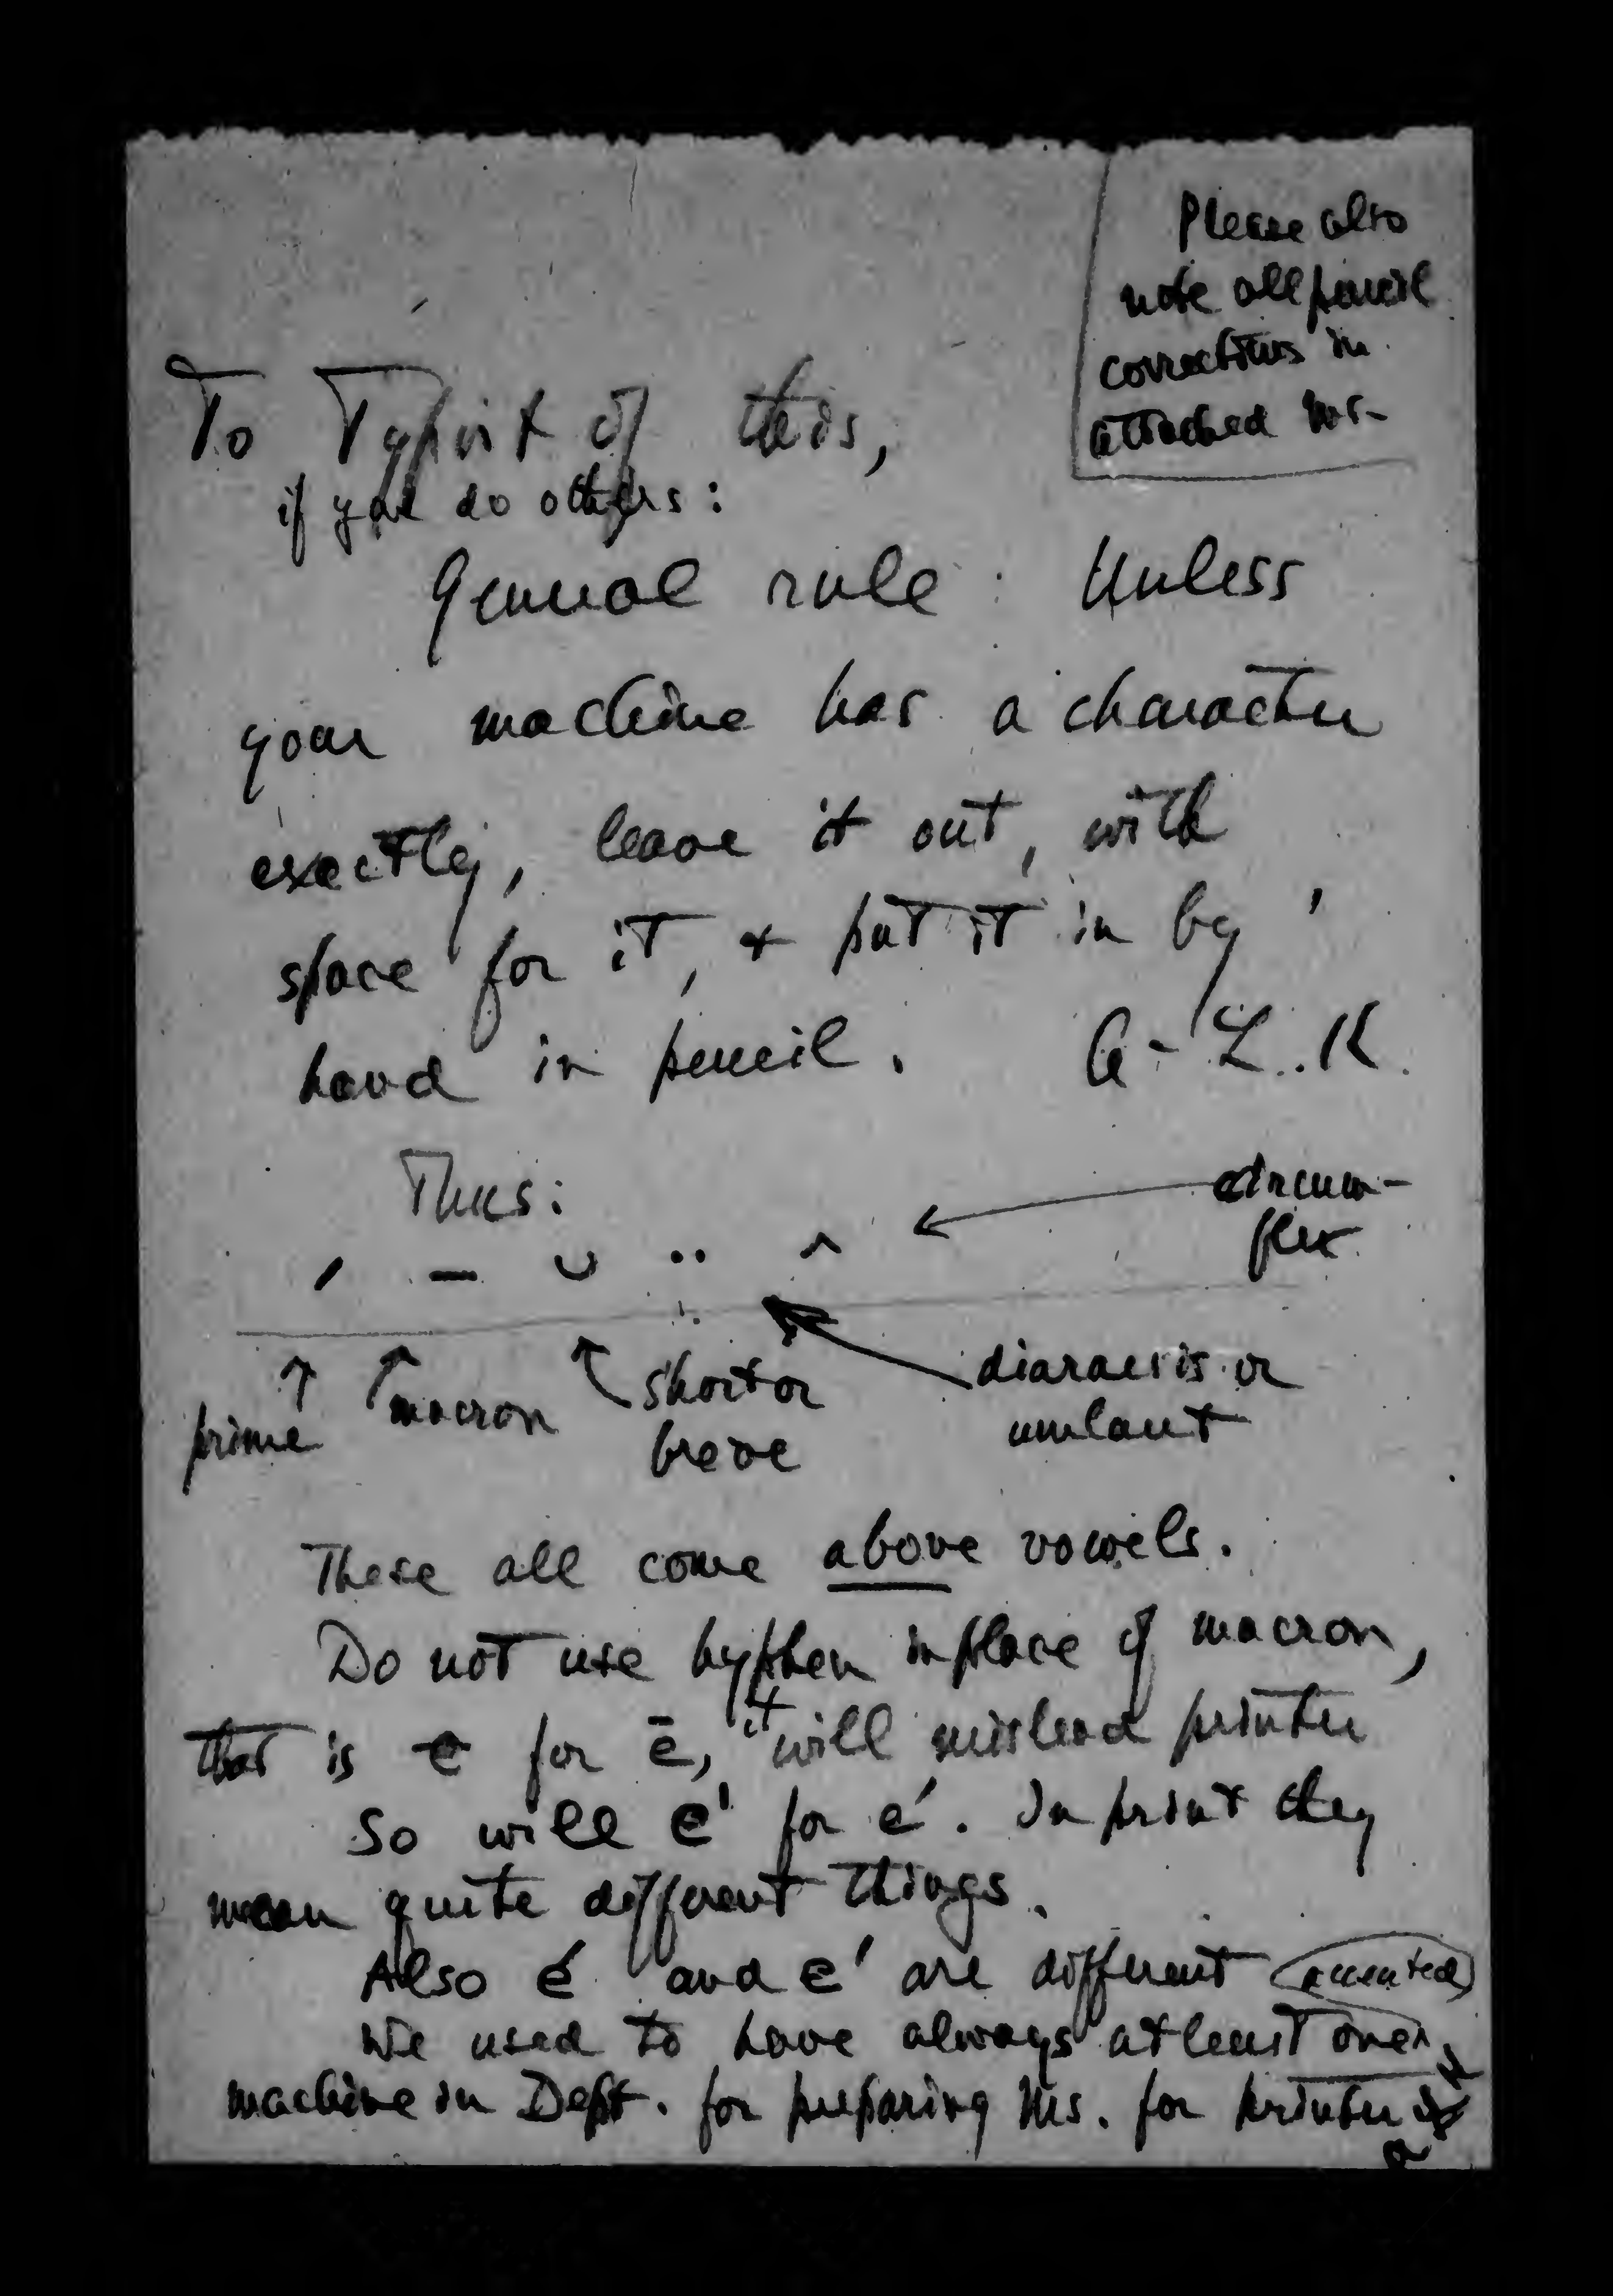 Please also
note all pencil
corrections in
attached ms.
To Typist of this,
if you do others:
General rule: Unless
your machine has a character
exactly, leave it out, with
space for it, & put it in by
hand in pencil. A. L. K.
Thus:
circum-
flex
ˊ – ˘ ¨ ^
prime macron short or
breve
diaraesis or
umlaut
These all come above vowels.
Do not use hyphen in place of macron,
that is e̵ for ē, it will mislead printer
So will e' for é. In print they
mean quite different things.
Also é and e' are different accented
We used to have always at least one
machine in Dept. for preparing Ms. for printer